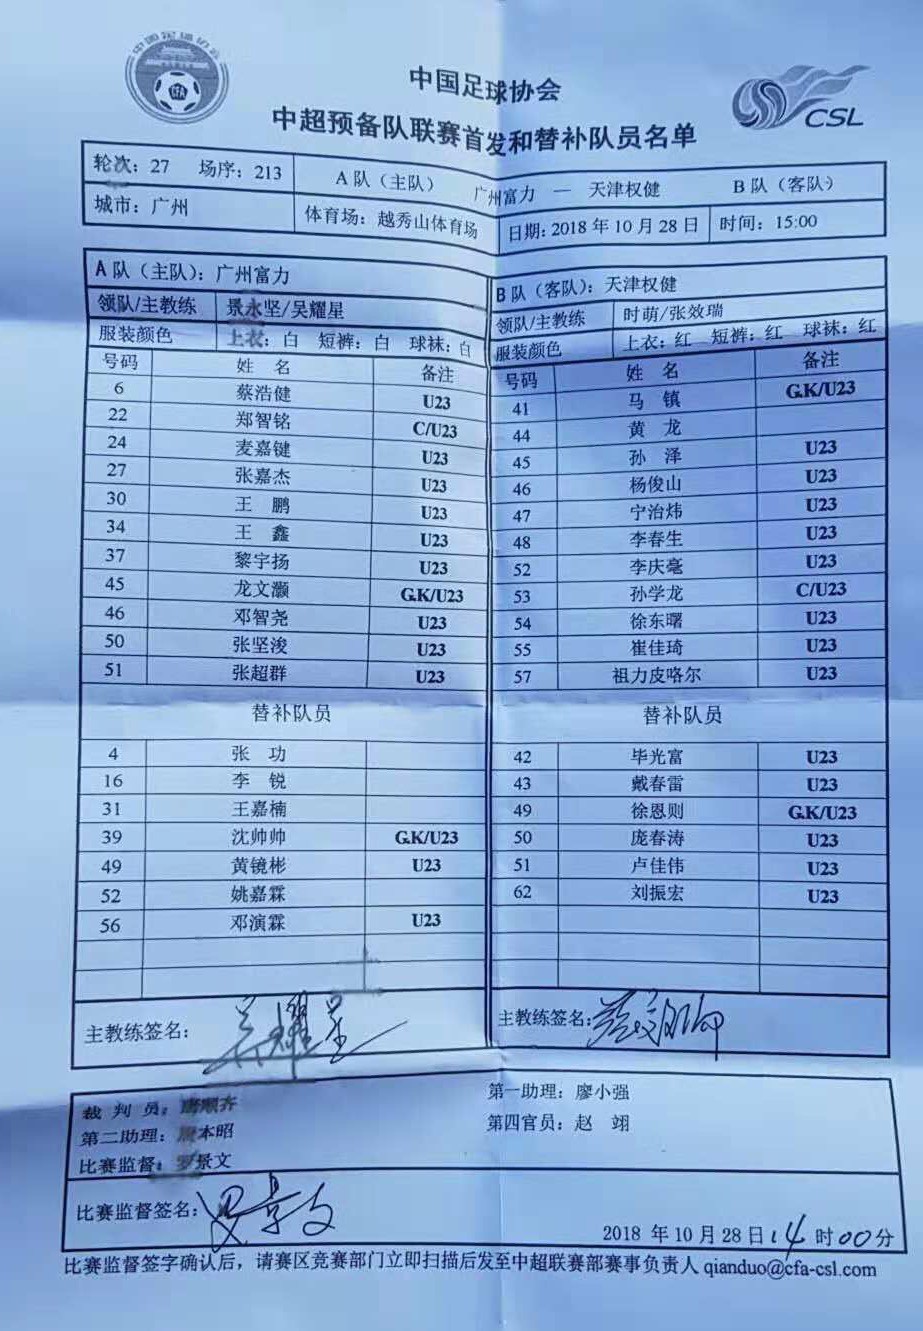 中国足球协会
CSL
中超预备队联赛首发和替补队员名单
轮次: 27 场序: 213 A 队（主队） 广州富力 — 天津权健 B 队（客队）
城市: 广州 体育场: 越秀山体育场 日期: 2018 年 10 月 28 日 时间: 15:00
A 队（主队）: 广州富力
领队/主教练 景永坚/吴耀星
服装颜色 上衣: 白 短裤: 白 球袜: 白
号码 姓 名 备注
6 蔡浩健 U23
22 郑智铭 C/U23
24 麦嘉键 U23
27 张嘉杰 U23
30 王 鹏 U23
34 王 鑫 U23
37 黎宇扬 U23
45 龙文灏 G.K/U23
46 邓智尧 U23
50 张坚浚 U23
51 张超群 U23
替补队员
4 张 功
16 李 锐
31 王嘉楠
39 沈帅帅 G.K/U23
49 黄镜彬 U23
52 姚嘉霖
56 邓演霖 U23
主教练签名: 吴耀星
B 队（客队）: 天津权健
领队/主教练 时萌/张效瑞
服装颜色 上衣: 红 短裤: 红 球袜: 红
号码 姓 名 备注
41 马 镇 G.K/U23
44 黄 龙
45 孙 泽 U23
46 杨俊山 U23
47 宁治炜 U23
48 李春生 U23
52 李庆毫 U23
53 孙学龙 C/U23
54 徐东曙 U23
55 崔佳琦 U23
57 祖力皮咯尔 U23
替补队员
42 毕光富 U23
43 戴春雷 U23
49 徐恩则 G.K/U23
50 庞春涛 U23
51 卢佳伟 U23
62 刘振宏 U23
主教练签名:
裁 判 员: 顺齐 第一助理: 廖小强
第二助理: 本昭 第四官员: 赵 翊
比赛监督: 罗景文
比赛监督签名: 罗景文
2018 年 10 月 28 日 14 时 00 分
比赛监督签字确认后，请赛区竞赛部门立即扫描后发至中超联赛部赛事负责人 qianduo@cfa-csl.com